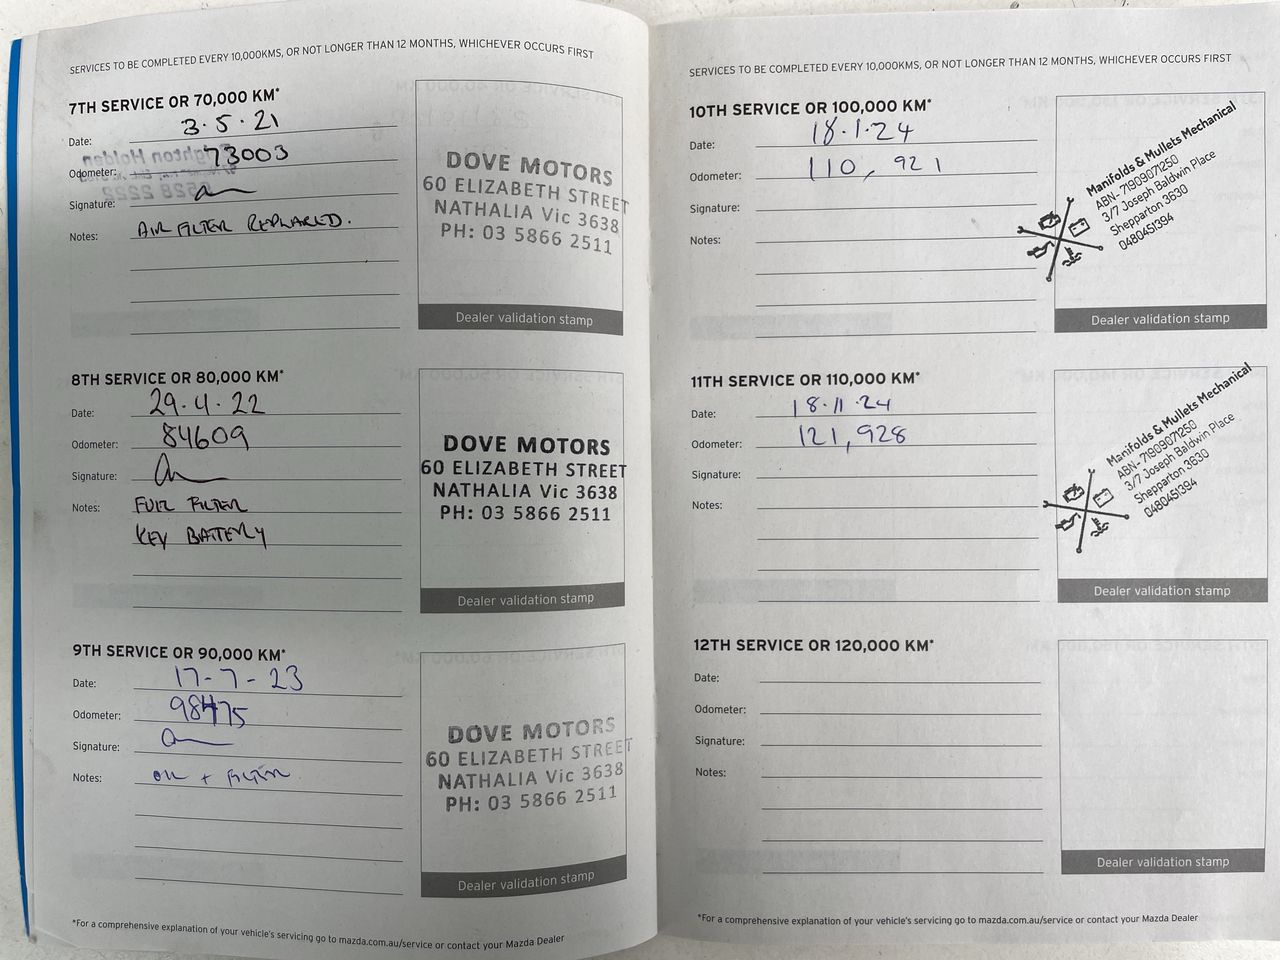 SERVICES TO BE COMPLETED EVERY 10,000KMS, OR NOT LONGER THAN 12 MONTHS, WHICHEVER OCCURS FIRST
7TH SERVICE OR 70,000 KM*
Date: 3.5.21
Odometer: 73003
Signature:
Notes: AIR FILTER REPLACED.
DOVE MOTORS
60 ELIZABETH STREET
NATHALIA Vic 3638
PH: 03 5866 2511
Dealer validation stamp
8TH SERVICE OR 80,000 KM*
Date: 29.4.22
Odometer: 84609
Signature:
Notes: FUEL FILTER
KEY BATTERY
DOVE MOTORS
60 ELIZABETH STREET
NATHALIA Vic 3638
PH: 03 5866 2511
Dealer validation stamp
9TH SERVICE OR 90,000 KM*
Date: 17-7-23
Odometer: 98475
Signature:
Notes: OIL + FILTER
DOVE MOTORS
60 ELIZABETH STREET
NATHALIA Vic 3638
PH: 03 5866 2511
Dealer validation stamp
*For a comprehensive explanation of your vehicle's servicing go to mazda.com.au/service or contact your Mazda Dealer
SERVICES TO BE COMPLETED EVERY 10,000KMS, OR NOT LONGER THAN 12 MONTHS, WHICHEVER OCCURS FIRST
10TH SERVICE OR 100,000 KM*
Date: 18.1.24
Odometer: 110,921
Signature:
Notes:
Manifolds & Mullets Mechanical
ABN- 71909071250
3/7 Joseph Baldwin Place
Shepparton 3630
0480451394
Dealer validation stamp
11TH SERVICE OR 110,000 KM*
Date: 18.11.24
Odometer: 121,928
Signature:
Notes:
Manifolds & Mullets Mechanical
ABN- 71909071250
3/7 Joseph Baldwin Place
Shepparton 3630
0480451394
Dealer validation stamp
12TH SERVICE OR 120,000 KM*
Date:
Odometer:
Signature:
Notes:
Dealer validation stamp
*For a comprehensive explanation of your vehicle's servicing go to mazda.com.au/service or contact your Mazda Dealer